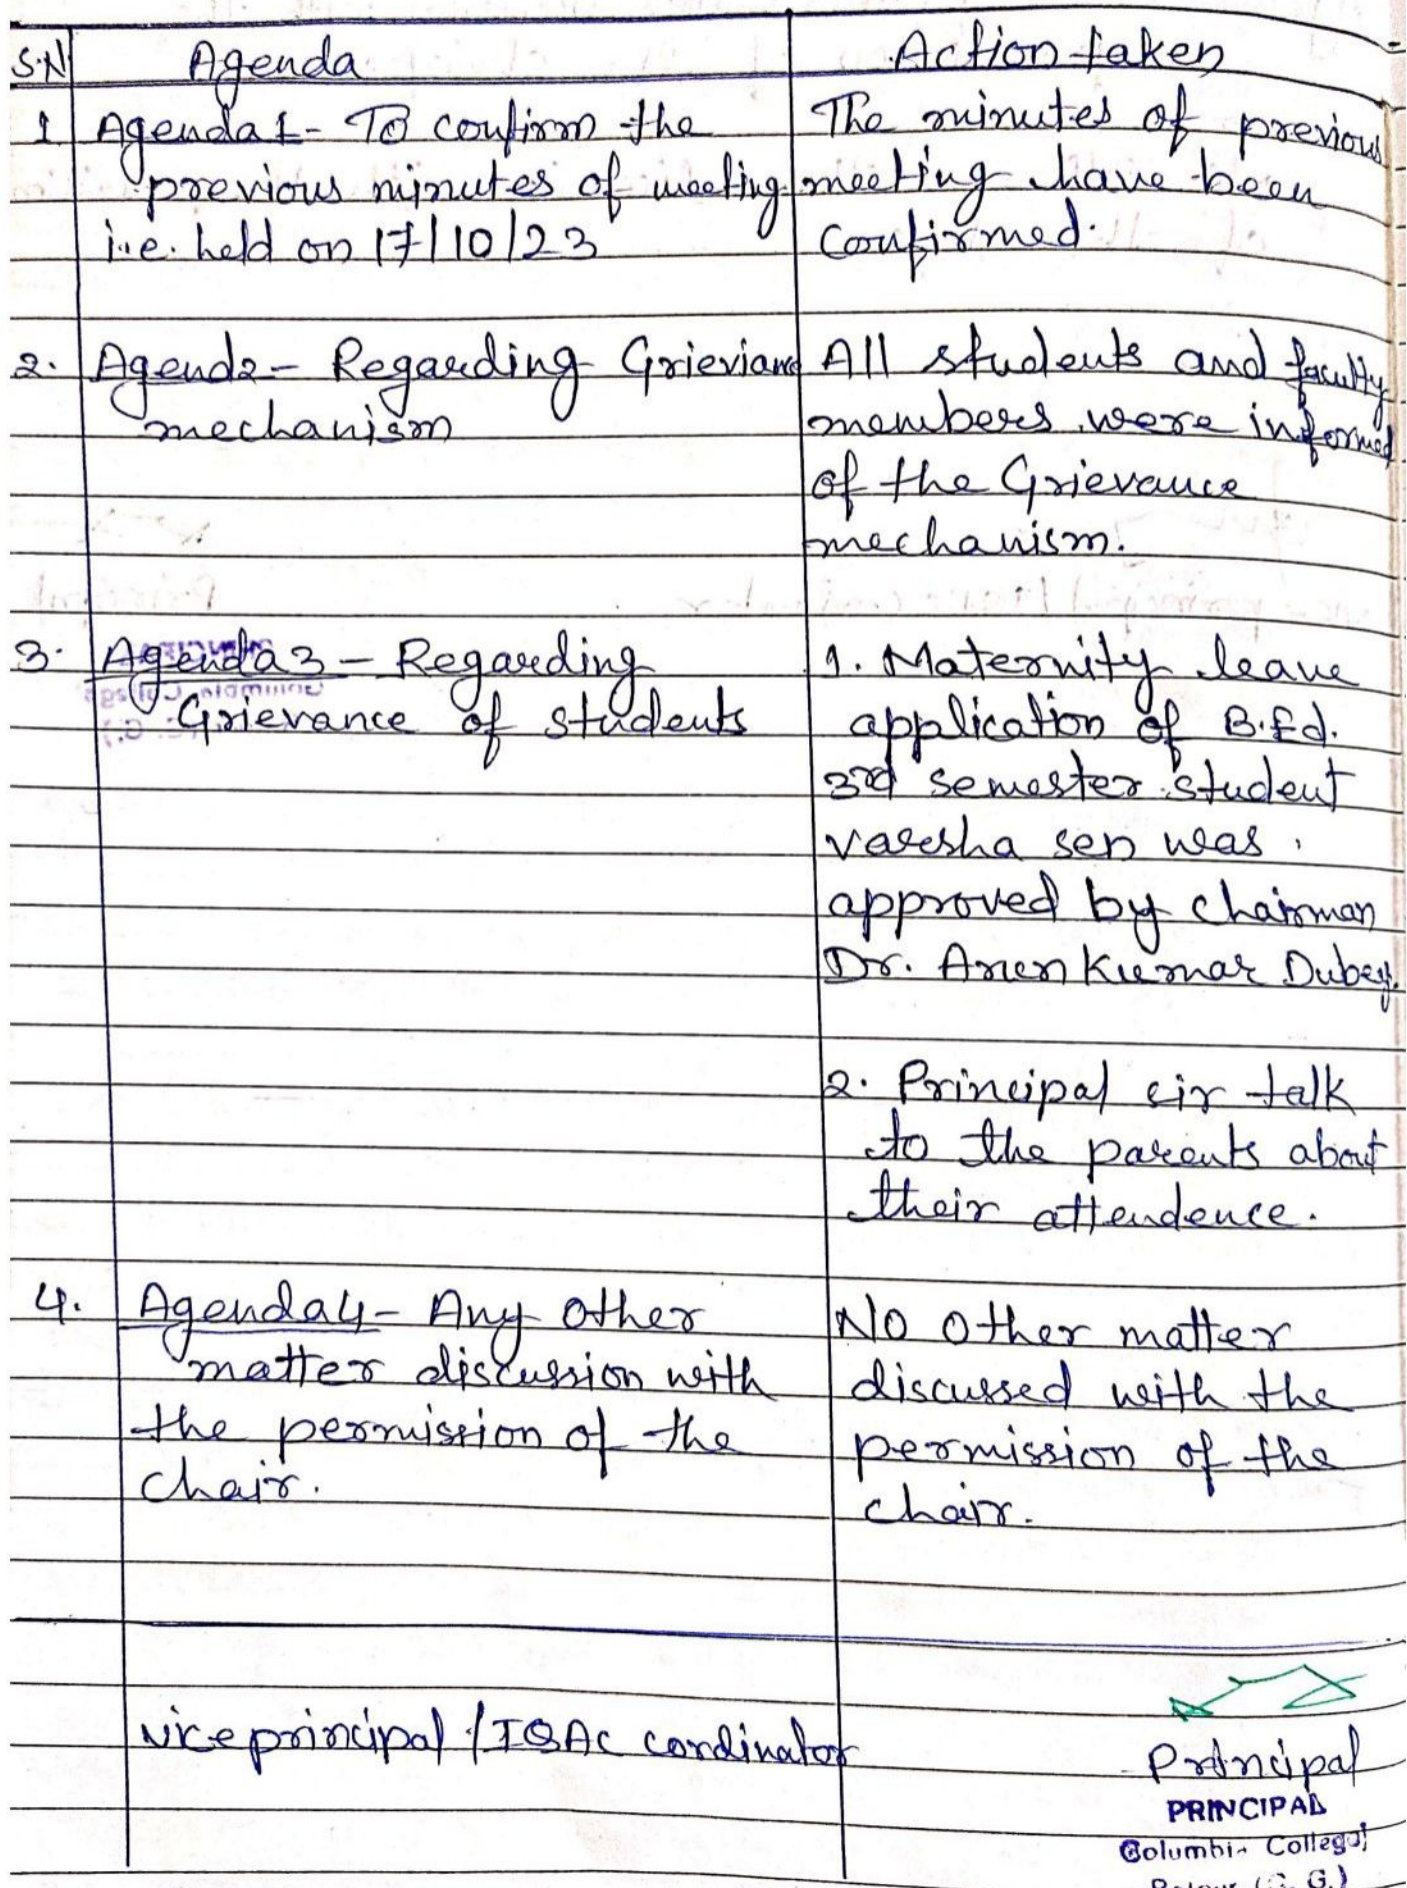 S.N Agenda Action taken
1 Agenda 1- To confirm the
previous minutes of meeting
i.e. held on 17/10/23
The minutes of previous
meeting have been
Confirmed.
2. Agend2- Regarding Grievianc
mechanism
All students and faculty
members were informed
of the Grievance
mechanism.
3. Agenda 3 - Regarding
Grievance of students
1. Maternity leave
application of B.Ed.
3rd semester student
varsha sen was
approved by chairman
Dr. Arun Kumar Dubey.
2. Principal sir talk
to the parents about
their attendence.
4. Agenda 4- Any other
matter discussion with
the permission of the
chair.
No other matter
discussed with the
permission of the
chair.
vice principal / IQAC cordinator
Principal
PRINCIPAL
Columbia College
(C. G.)